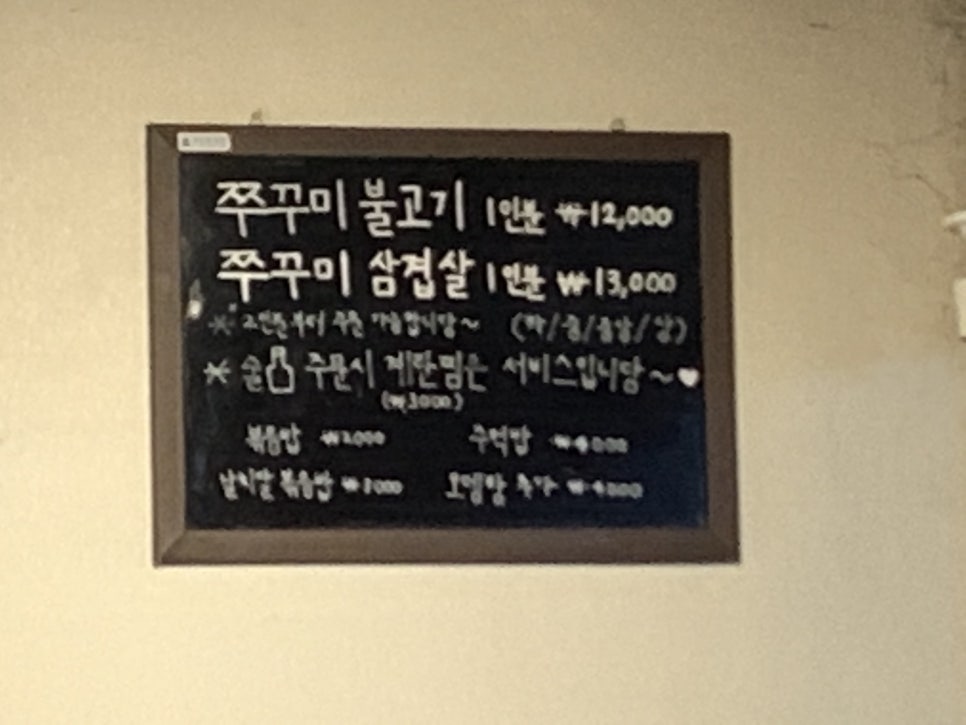 쭈꾸미 불고기 1인분 ₩12,000
쭈꾸미 삼겹살 1인분 ₩13,000
* 2인분부터 주문 가능합니당~
* 술 주문시 계란찜은 서비스입니당~♥
(₩3000)
볶음밥 ₩2000 주먹밥
날치알 볶음밥 ₩3000 추가